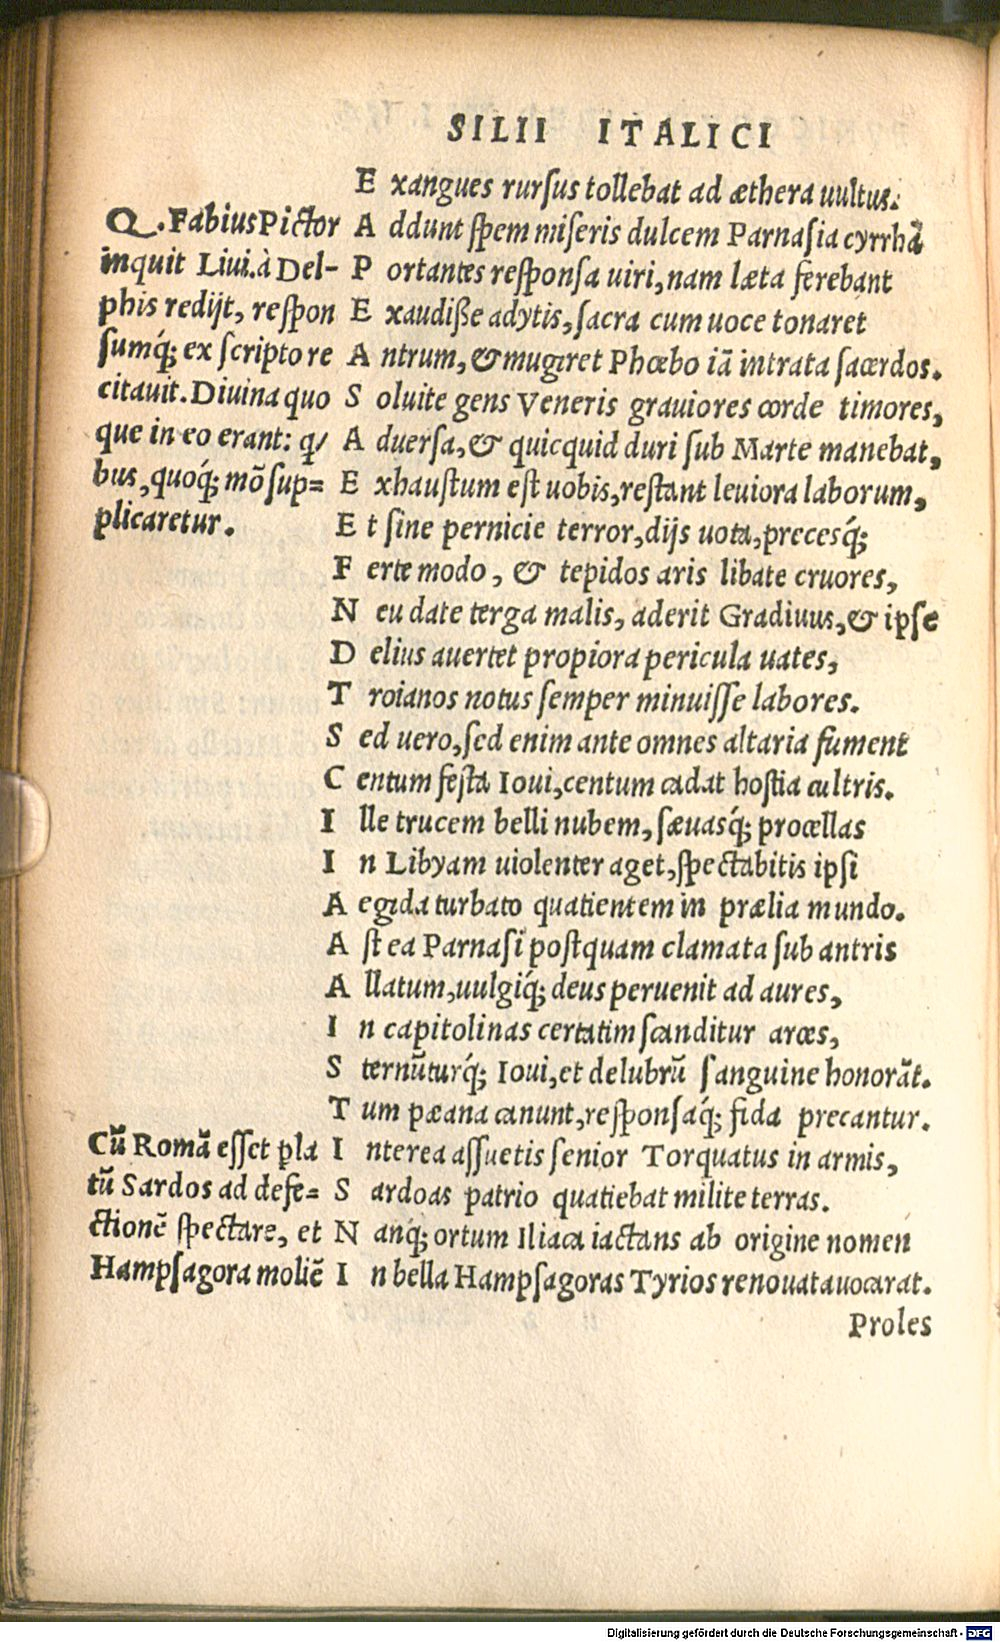 SILII ITALICI
Exangues rursus tollebat ad æthera uultus.
Addunt spem miseris dulcem Parnasia cyrrhã
Portantes responsa uiri, nam læta ferebant
Exaudiße adytis, sacra cum uoce tonaret
Antrum, & mugiret Phœbo iã intrata sacerdos.
Soluite gens Veneris grauiores corde timores,
Aduersa, & quicquid duri sub Marte manebat,
Exhaustum est uobis, restant leuiora laborum,
Et sine pernicie terror, dijs uota, precesq́;
Ferte modo, & tepidos aris libate cruores,
Neu date terga malis, aderit Gradiuus, & ipse
Delius auertet propiora pericula uates,
Troianos notus semper minuisse labores.
Sed uero, sed enim ante omnes altaria fument
Centum festa Ioui, centum cadat hostia cultris.
Ille trucem belli nubem, sæuasq́; procellas
In Libyam uiolenter aget, spectabitis ipsi
Aegida turbato quatientem in prælia mundo.
Ast ea Parnasi postquam clamata sub antris
Allatum, uulgiq́; deus peruenit ad aures,
In capitolinas certatim scanditur arces,
Sternũturq́; Ioui, et delubrũ sanguine honorãt.
Tum pæana canunt, responsaq́; fida precantur.
Interea assuetis senior Torquatus in armis,
Sardoas patrio quatiebat milite terras.
Nanq́; ortum Iliaca iactans ab origine nomen
In bella Hampsagoras Tyrios renouata uocarat.
Proles
Q. Fabius Pictor
inquit Liui. à Del-
phis redijt, respon
sumq́; ex scripto re
citauit. Diuina quo
que in eo erant: q/
bus, quoq́; mõ sup=
plicaretur.
Cũ Romã esset pla
tũ Sardos ad defe=
ctionẽ spectare, et
Hampsagora moliẽ
Digitalisierung gefördert durch die Deutsche Forschungsgemeinschaft - DFG